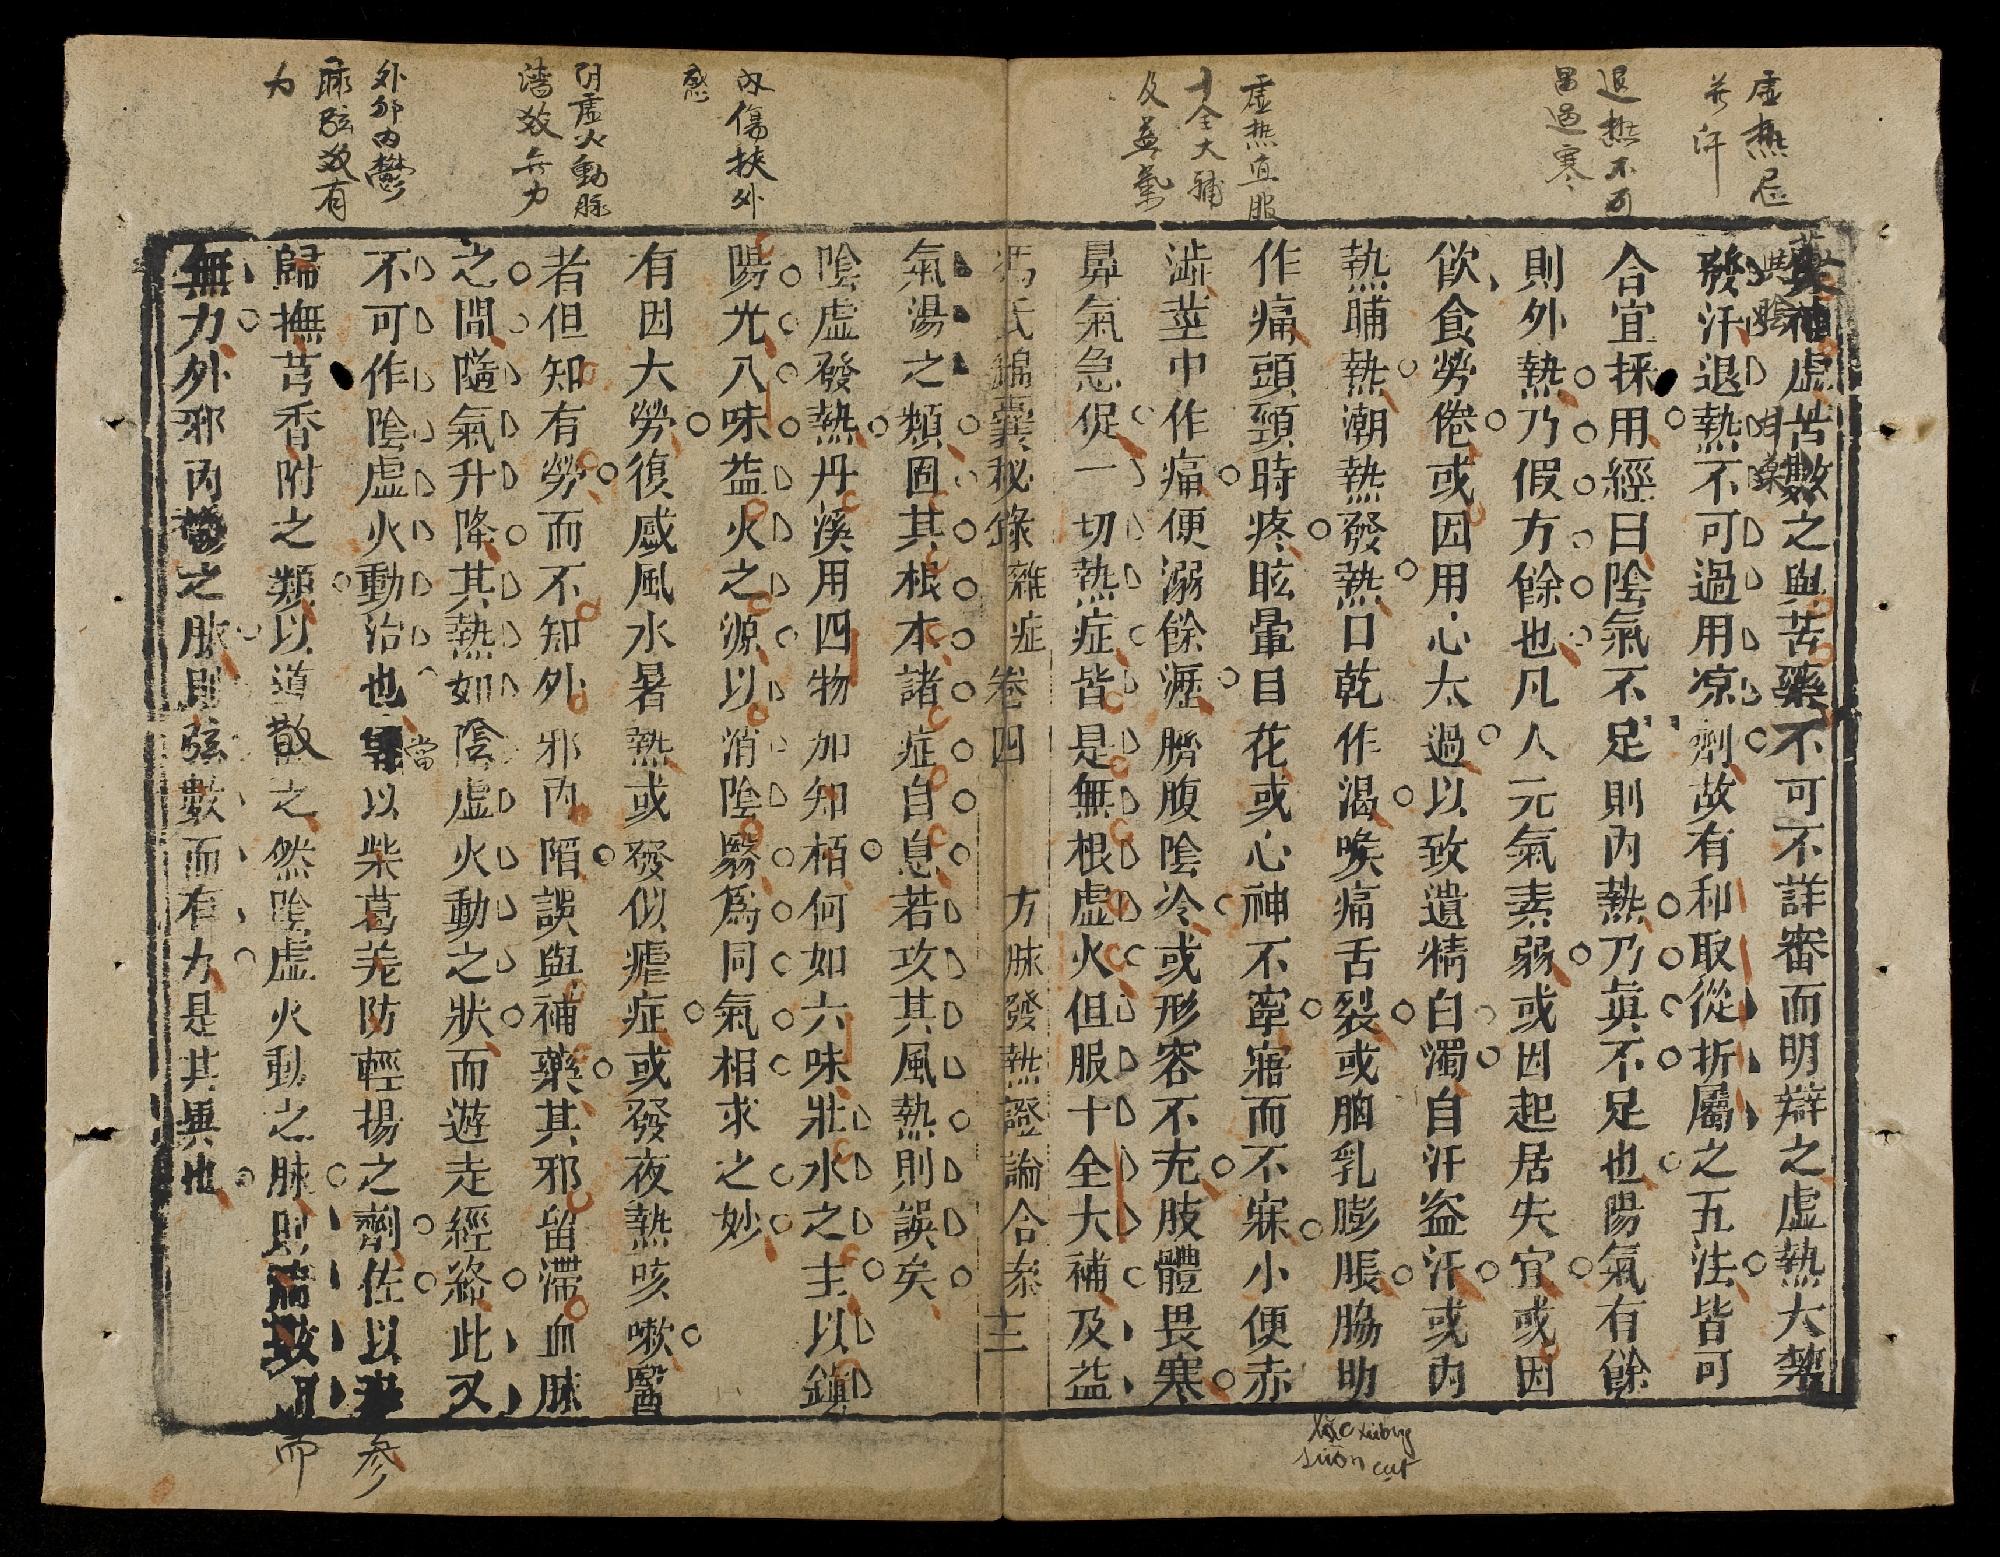 虛熱忌
發汗
退熱不可
過寒
虛熱宜服
十全大補
及益氣
內傷挾外
感
阴虛火動脉
濇数無力
外邪內鬱
脉弦数有
力
虛苦數之與苦藥不可不詳審而明辯之虛熱大禁
發汗退熱不可過用凉劑故有和取從折屬之五法皆可
合宜採用經曰陰氣不足則內熱乃眞不足也陽氣有餘
則外熱乃假方餘也凡人元氣素弱或因起居失宜或因
飮食勞倦或因用心太過以致遺精白濁自汗盜汗或內
熱晡熱潮熱發熱口乾作渴喉痛舌裂或胸乳膨脹脇肋
作痛頭頸時疼眩暈目花或心神不寧寤而不寐小便赤
澁莖中作痛便溺餘瀝臍腹陰冷或形容不充肢體畏寒
鼻氣急促一切熱症皆是無根虛火但服十全大補及益
馮氏錦囊秘錄雜症卷四 方脉發熱證論合叅 三
氣湯之類固其根本諸症自息若攻其風熱則誤矣
陰虛發熱丹溪用四物加知栢何如六味壯水之主以鎮
陽光八味益火之源以消陰翳爲同氣相求之妙
有因大勞復感風水暑熱或發似瘧症或發夜熱咳嗽醫
者但知有勞而不知外邪內陷誤與補藥其邪留滯血脉
之間隨氣升降其熱如陰虛火動之狀而遊走經絡此又
不可作陰虛火動治也當以柴葛羌防輕揚之劑佐以參
歸撫芎香附之類以道散之然陰虛火動之脉則濇數而
無力外邪內鬱之脉則弦數而有力是其異也
sườn cụt